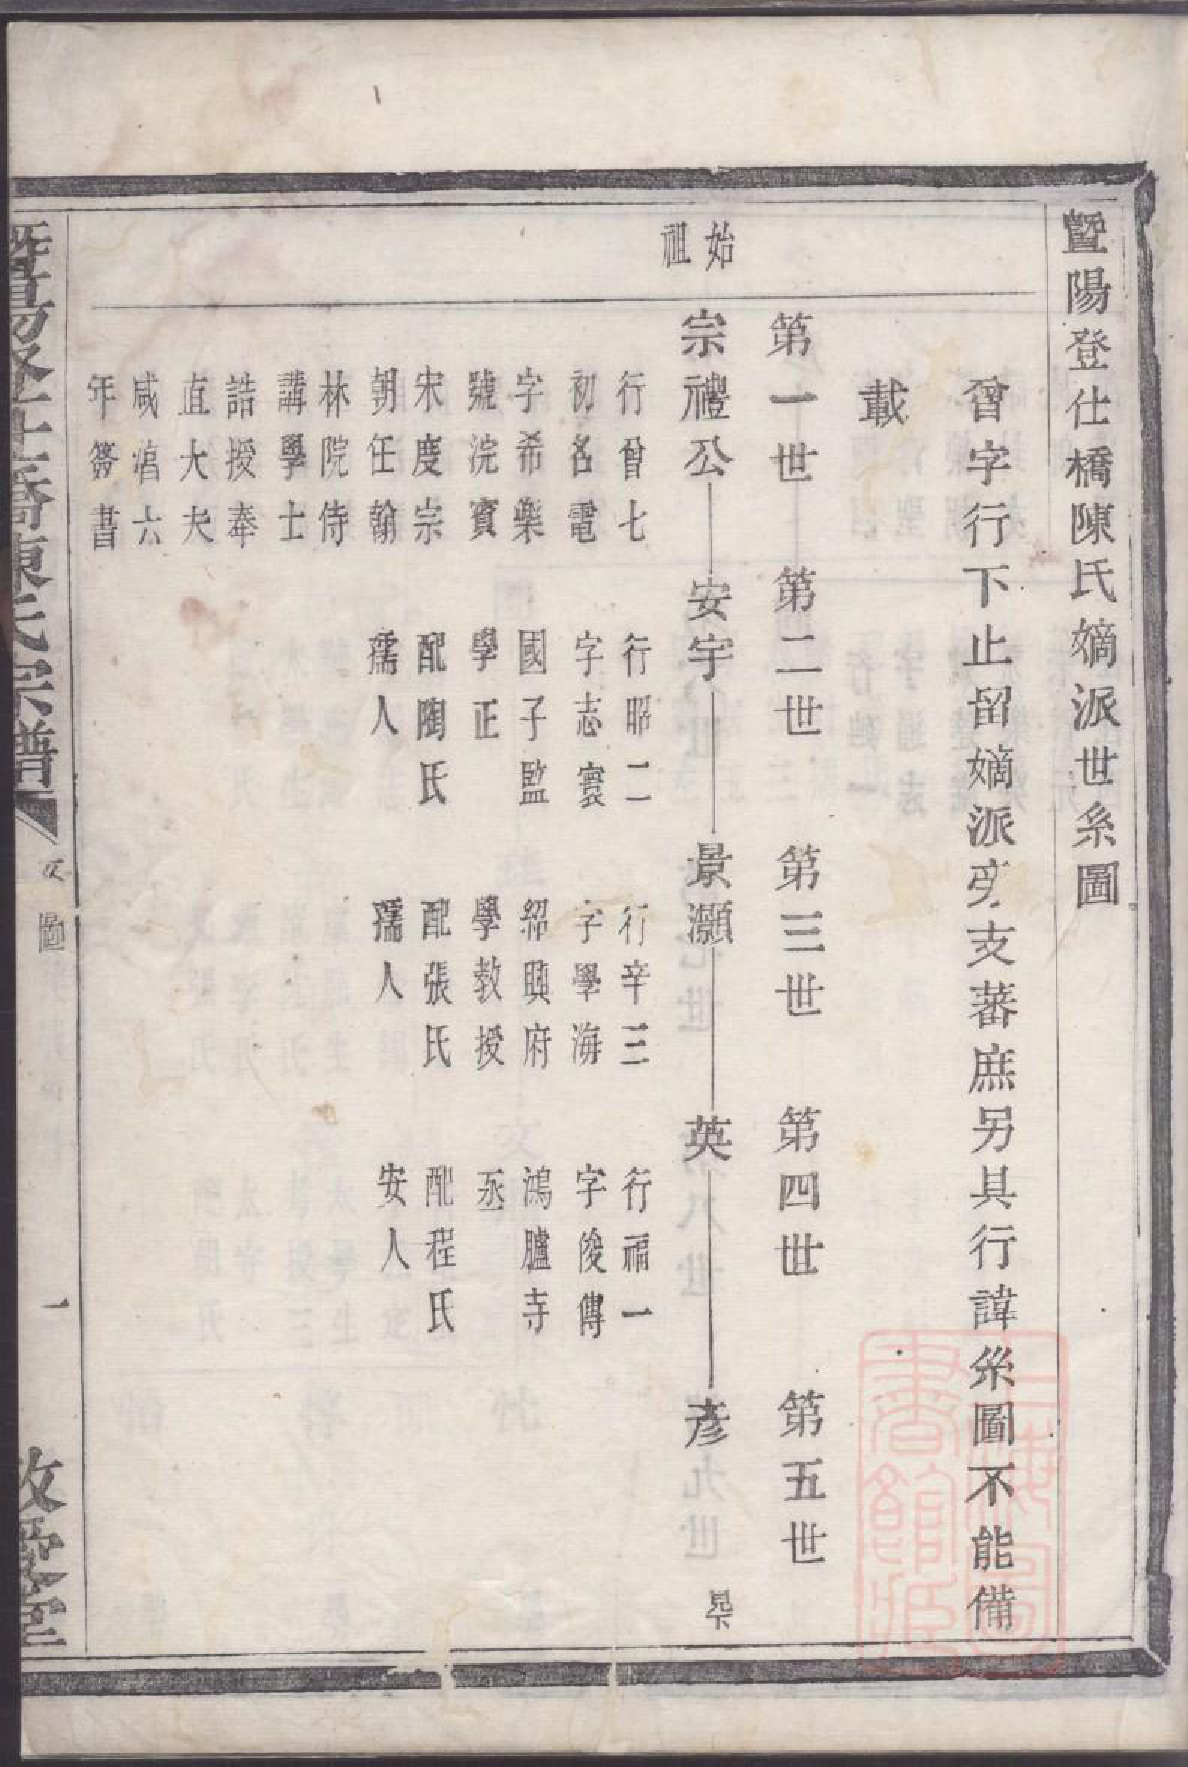 暨陽登仕橋陳氏嫡派世系圖
曾字行下止留嫡派旁支蕃庶另具行諱系圖不能備
載
第一世 第二世 第三世 第四世 第五世
始祖
宗禮公 安宇 景灝 英 彥
行曾七
初名電
字希樂
號浣賓
宋度宗
朝任翰
林院侍
講學士
誥授奉
直大夫
咸淳六
年簽書
行昭二
字志寰
國子監
學正
配陶氏
孺人
行辛三
字學海
紹興府
學教授
配張氏
孺人
行福一
字俊傳
鴻臚寺
丞
配程氏
安人
暨陽登仕橋陳氏宗譜
圖
一
敦愛堂